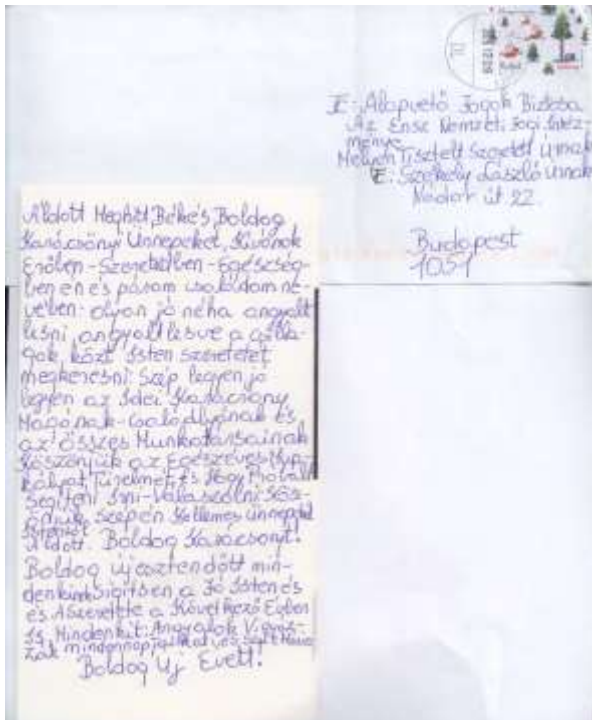 E: Alapvető Jogok Biztosa
Az Ensz Nemzeti Jogi Intéz-
ménye
Melyen Tisztelt Szeretett Urnak
E: Székely László Urnak
Nádor út 22.
Budapest
1051
Áldott Meghitt Békés Boldog
Karácsonyi Ünnepeket, Kivánok
Erőben-Szeretetben-Egészség-
ben én és párom családom ne-
vében. olyan jó néha angyalt
lesni, angyalt lesve a csilla-
gok közt Isten szeretetét
megkeresni. Szép legyen jó
legyen az Idei Karácsony
Magának-Családjának és
az összes Munkatársainak
Köszönjük az Egészéves
Türelmet, és Hogy Próbált
Segíteni Irni-Válaszolni
Szépen Kellemes ünnepeket
Áldott. Boldog Karácsonyt!
Boldog uj esztendőtt min-
denkinek Sigitsen a Jó Isten és
és A Szeretete a Következő Évben
is Mindenkit: Angyalok Vigyáz-
zák mindennapjaikat
Boldog Uj Évett!